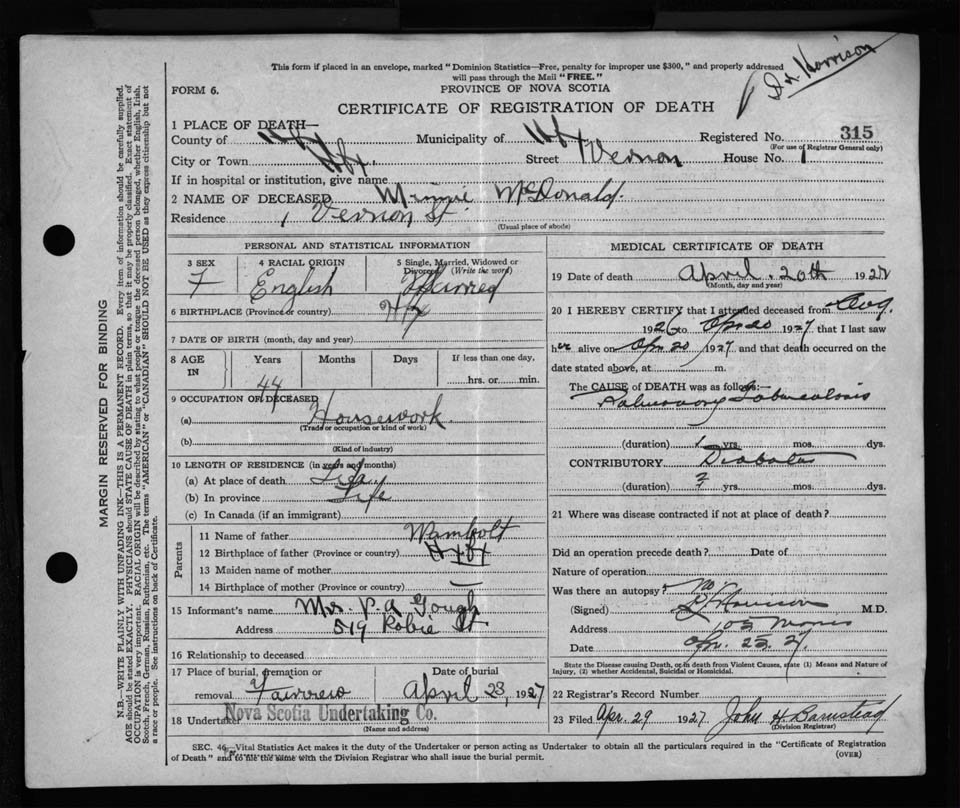 This form if placed in an envelope, marked "Dominion Statistics—Free, penalty for improper use $300," and properly addressed
will pass through the Mail "FREE."
Dr. Harrison
FORM 6.
PROVINCE OF NOVA SCOTIA
CERTIFICATE OF REGISTRATION OF DEATH
1 PLACE OF DEATH—
County of Hfx Municipality of Hfx Registered No. 315
(For use of Registrar General only)
City or Town Hfx. Street Vernon House No. 1
If in hospital or institution, give name
2 NAME OF DECEASED Minnie McDonald.
Residence 1 Vernon St.
(Usual place of abode)
MARGIN RESERVED FOR BINDING
N.B.—WRITE PLAINLY WITH UNFADING INK—THIS IS A PERMANENT RECORD. Every item of information should be carefully supplied.
AGE should be stated EXACTLY. PHYSICIANS should STATE CAUSE OF DEATH in plain terms, so that it may be properly classified. Exact statement of
OCCUPATION is very important. RACIAL ORIGIN will be described by stating to what people or tongue the deceased person belonged, whether English, Irish,
Scotch, French, German, Russian, Ruthenian, etc. The terms "AMERICAN" or "CANADIAN" SHOULD NOT BE USED as they express citizenship but not
a race or people. See instructions on back of Certificate.
PERSONAL AND STATISTICAL INFORMATION
3 SEX F
4 RACIAL ORIGIN English
5 Single, Married, Widowed or
Divorced (Write the word)
Married
6 BIRTHPLACE (Province or country) Hfx
7 DATE OF BIRTH (month, day and year)
8 AGE IN Years Months Days If less than one day,
44 hrs. or min.
9 OCCUPATION OF DECEASED
(a) Housework.
(Trade or occupation or kind of work)
(b)
(Kind of industry)
10 LENGTH OF RESIDENCE (in years and months)
(a) At place of death Life
(b) In province Life
(c) In Canada (if an immigrant)
Parents
11 Name of father Wambolt
12 Birthplace of father (Province or country) Hfx
13 Maiden name of mother —
14 Birthplace of mother (Province or country) —
15 Informant's name Mrs. P. A Gough
Address 519 Robie St
16 Relationship to deceased
17 Place of burial, cremation or Date of burial
removal Fairview April 23, 1927
18 Undertaker Nova Scotia Undertaking Co.
(Name and address)
MEDICAL CERTIFICATE OF DEATH
19 Date of death April. 20th 1927
(Month, day and year)
20 I HEREBY CERTIFY that I attended deceased from Aug.
1926 to Apr 20 1927, that I last saw
her alive on Apr. 20 1927 and that death occurred on the
date stated above, at m.
The CAUSE of DEATH was as follows:—
Pulmonary Tuberculosis
(duration) 1 yrs. mos. dys.
CONTRIBUTORY Diabetes
(duration) yrs. mos. dys.
21 Where was disease contracted if not at place of death?
Did an operation precede death? Date of
Nature of operation
Was there an autopsy? no
(Signed) Harrison M.D.
Address Morris
Date Apr. 25. 27.
State the Disease causing Death, or in death from Violent Causes, state (1) Means and Nature of
Injury, (2) whether Accidental, Suicidal or Homicidal.
22 Registrar's Record Number
23 Filed Apr. 29 1927 John H Barnstead
(Division Registrar)
SEC. 46—Vital Statistics Act makes it the duty of the Undertaker or person acting as Undertaker to obtain all the particulars required in the "Certificate of Registration
of Death" and to file the same with the Division Registrar who shall issue the burial permit. (OVER)